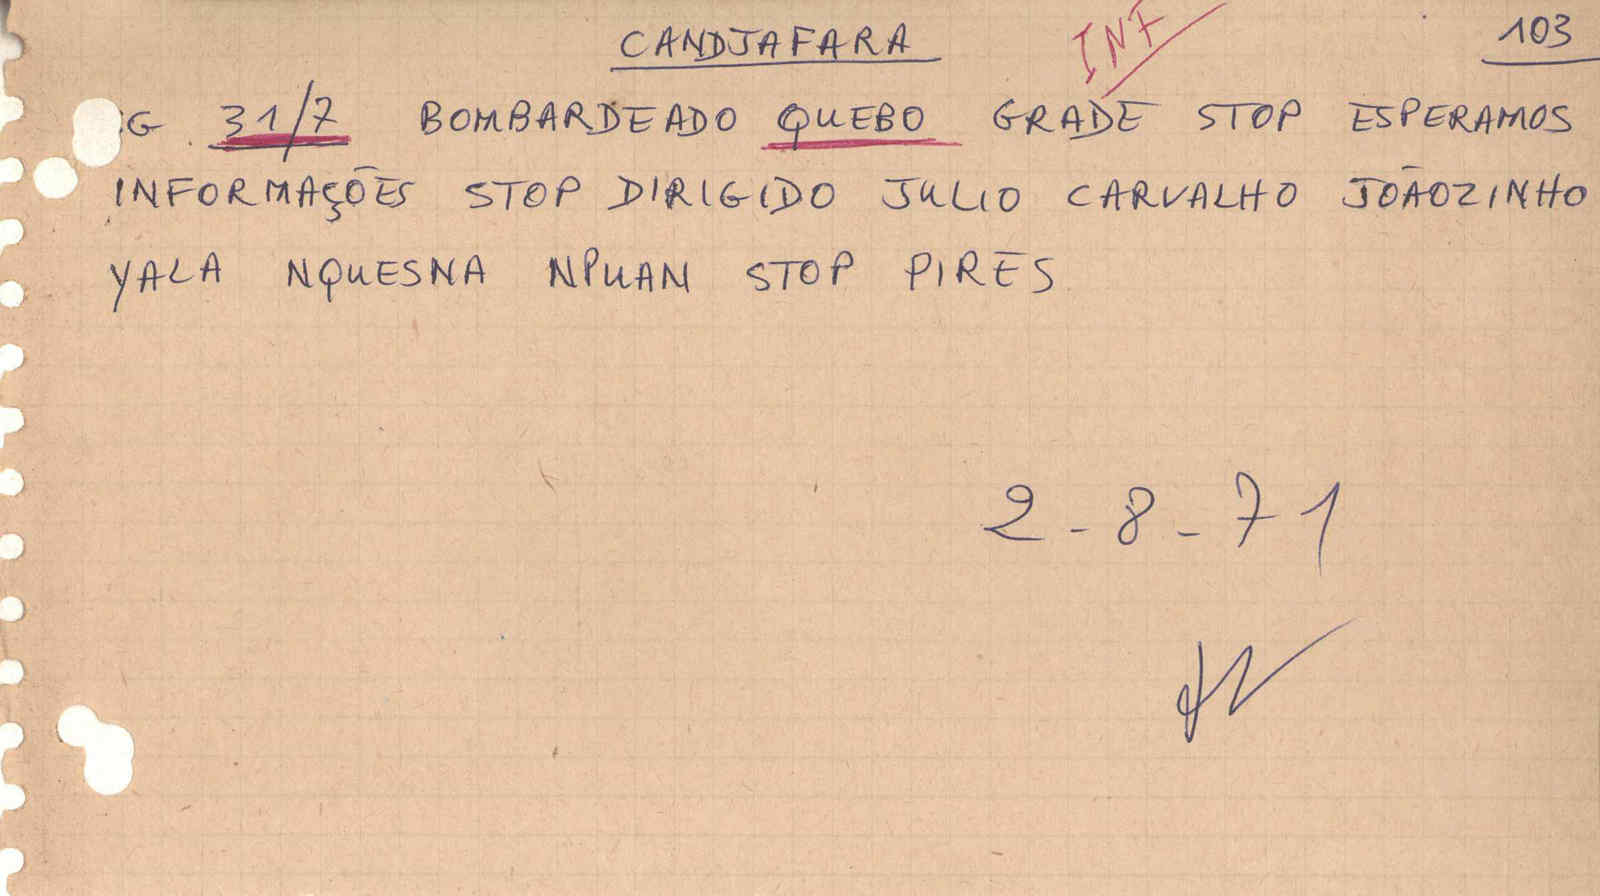 CANDJAFARA
INF
103
G 31/7 BOMBARDEADO QUEBO GRADE STOP ESPERAMOS
INFORMAÇÕES STOP DIRIGIDO JULIO CARVALHO JOÃOZINHO
YALA NQUESNA NPUAN STOP PIRES
2-8-71